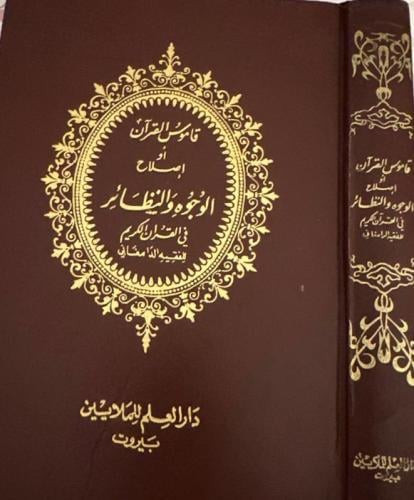 قاموس القرآن
أو
إصلاح
الوجوه والنظائر
في القرآن الكريم
للفقيه الدامغاني
دار العلم للملايين
بيروت
قاموس القرآن
أو
إصلاح
الوجوه والنظائر
في القرآن الكريم
للفقيه الدامغاني
دار العلم للملايين
بيروت